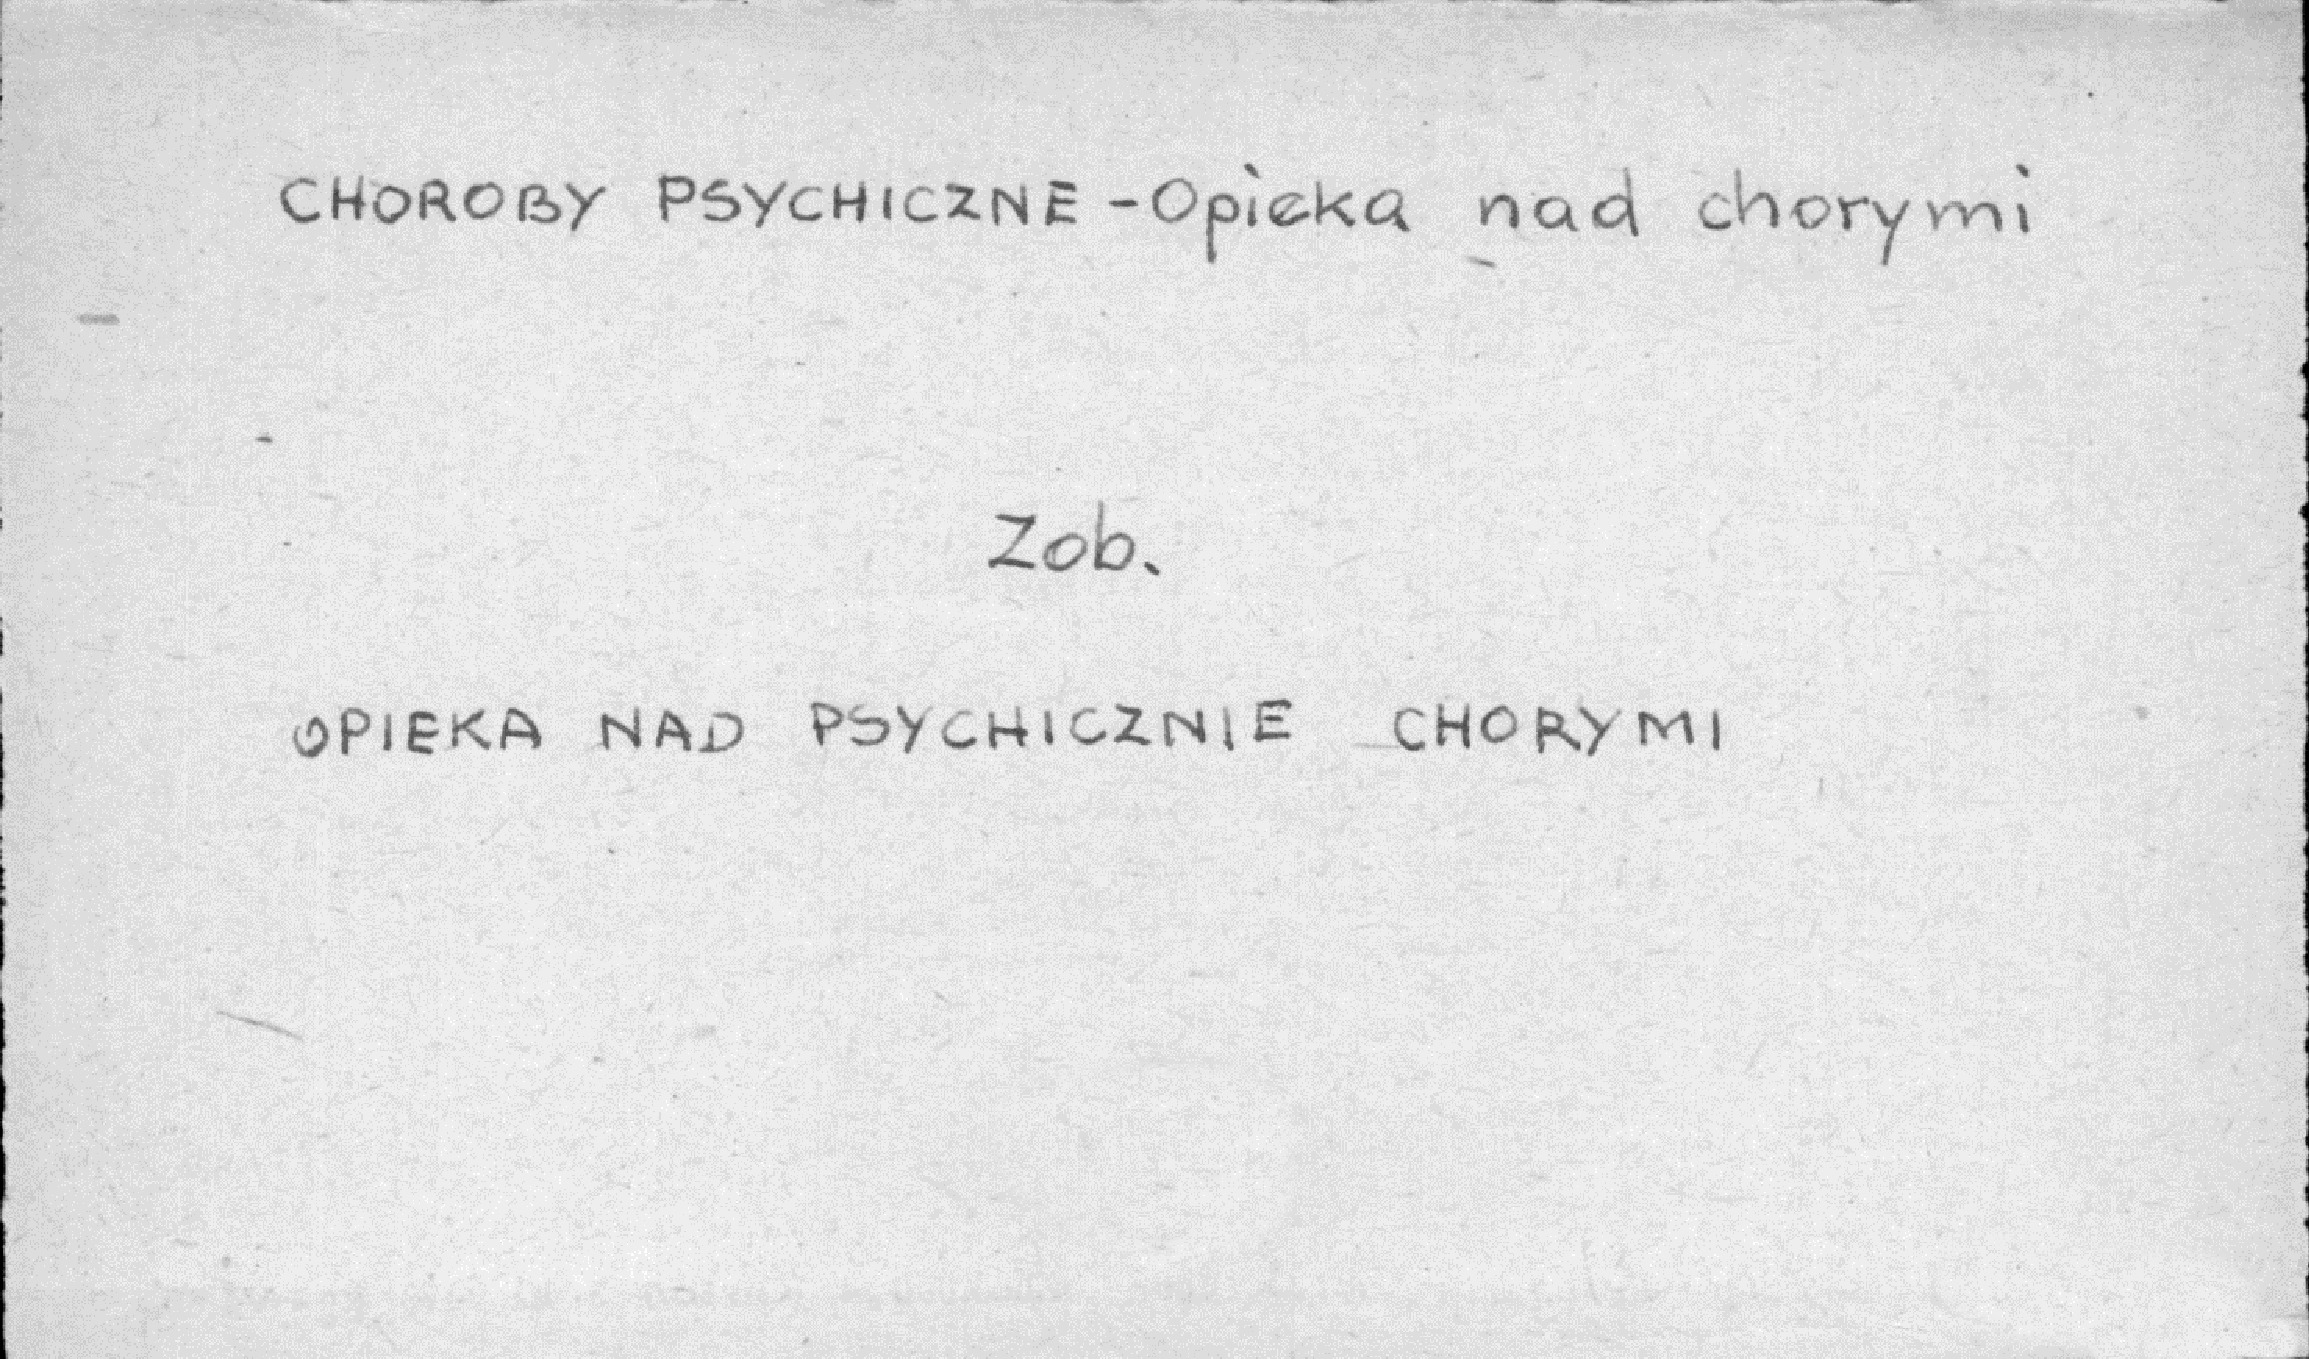 CHOROBY PSYCHICZNE - Opieka nad chorymi
Zob.
OPIEKA NAD PSYCHICZNIE CHORYMI